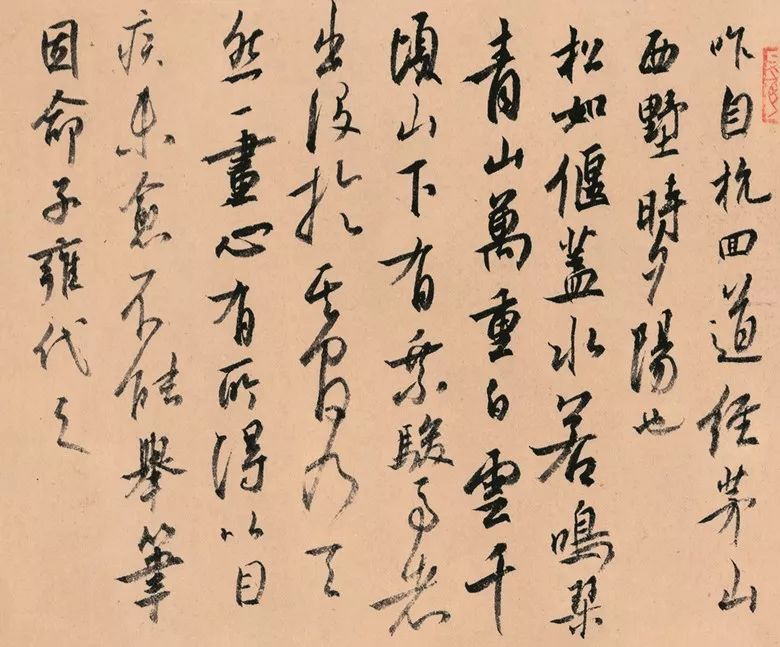 昨自杭回道經茅山
西墅時夕陽也
松如偃蓋水若鳴琴
青山萬重白雲千
頃山下有乘駿馬者
出沒於其間乃天
然一畫心有所得以目
疾未愈不能舉筆
因命子雍代之